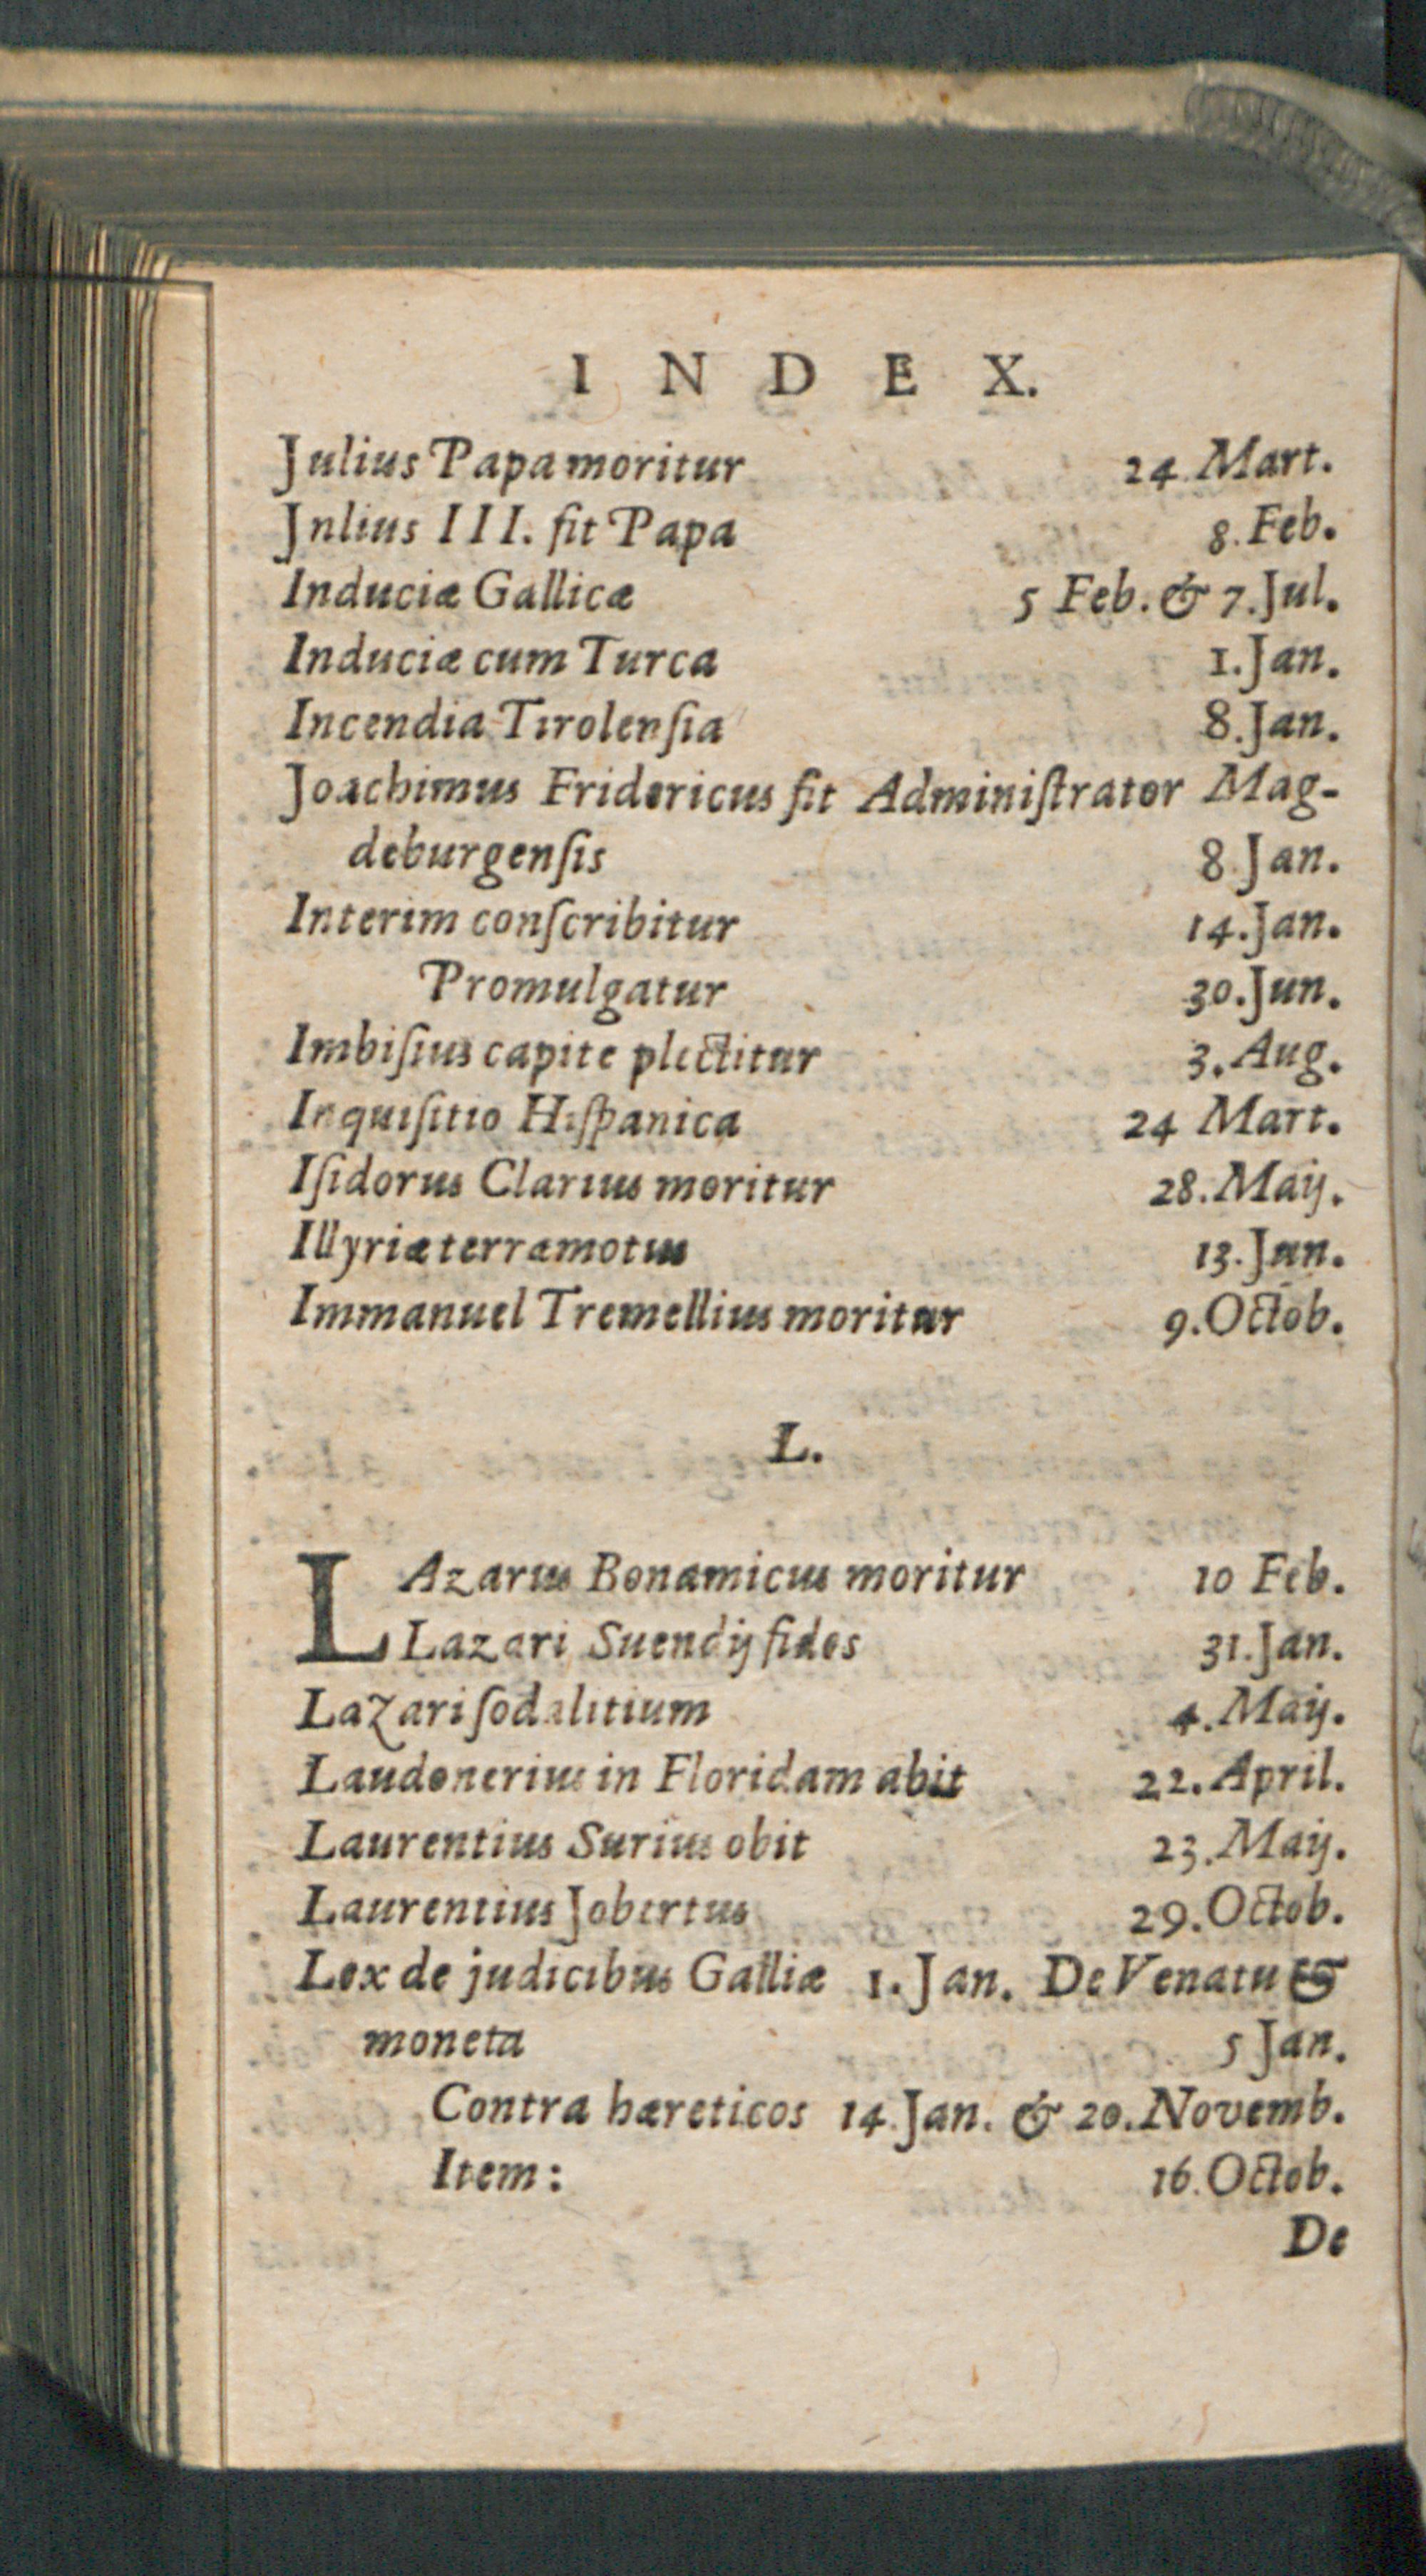 INDEX.
Julius Papa moritur 24 Mart.
Jnlius III. fit Papa 8. Feb.
Induciæ Gallicæ 5 Feb. & 7. Jul.
Induciæ cum Turca 1. Jan.
Incendia Tirolenſia 8. Jan.
Joachimus Fridericus fit Adminiſtrator Mag-
deburgenſis 8 Jan.
Interim conſcribitur 14. Jan.
Promulgatur 30. Jun.
Imbiſius capite plectitur 3. Aug.
Inquiſitio Hiſpanica 24 Mart.
Iſidorus Clarius moritur 28. Maij.
Illyriæ terræmotus 13. Jun.
Immanuel Tremellius moritur 9. Octob.
L.
LAzarus Bonamicus moritur 10 Feb.
Lazari Suendij fides 31. Jan.
Lazari ſodalitium 4. Maij.
Laudonerius in Floridam abit 22. April.
Laurentius Surius obit 23. Maij.
Laurentius Jobertus 29. Octob.
Lex de judicibus Galliæ 1. Jan. De Venatu &
moneta 5 Jan.
Contra hæreticos 14. Jan. & 20. Novemb.
Item: 16. Octob.
De